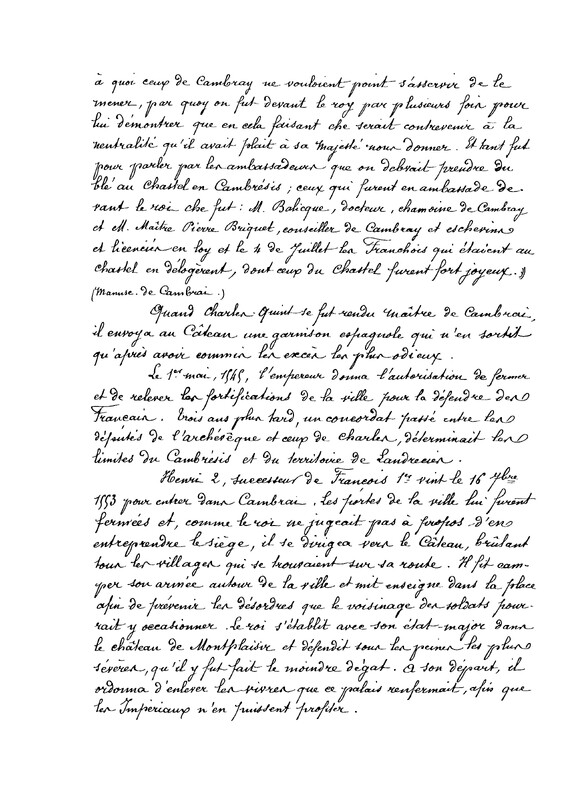 à quoi ceux de Cambray ne vouloient point s'asservir de le
mener, par quoy on fut devant le roy par plusieurs fois pour
lui démontrer que en cela faisant che serait contrevenir à la
neutralité qu'il avait plait à sa Majesté nous donner. Et tant fut
pour parler par les ambassadeurs que on debvait prendre du
blé au Chastel en Cambrésis ; ceux qui furent en ambassade de-
vant le roi che fut : M. Balicque, docteur, chamoine de Cambray
et M. Maître Pierre Briquet, conseiller de Cambray et eschevins
et licenciés en loy et le 4 de Juillet les Franchois qui étaient au
chastel en délogèrent, dont ceux du Chastel furent fort joyeux. »
(Manusc. de Cambrai.)
Quand Charles-Quint se fut rendu maître de Cambrai,
il envoya au Câteau une garnison espagnole qui n'en sortit
qu'après avoir commis les excès les plus odieux.
Le 1er mai, 1545, l'empereur donna l'autorisation de fermer
et de relever les fortifications de la ville pour la défendre des
Français. Trois ans plus tard, un concordat passé entre les
députés de l'archévêque et ceux de Charles, déterminait les
limites du Cambrésis et du territoire de Landrecies.
Henri 2, successeur de François 1er vint le 16 7bre
1553 pour entrer dans Cambrai. Les portes de la ville lui furent
fermées et, comme le roi ne jugeait pas à propos d'en
entreprendre le siège, il se dirigea vers le Câteau, brûlant
tous les villages qui se trouvaient sur sa route. Il fit cam-
per son armée autour de la ville et mit enseigne dans la place
afin de prévenir les désordres que le voisinage des soldats pour-
rait y occasionner. Le roi s'établit avec son état-major dans
le château de Montplaisir et défendit sous les peines les plus
sévères, qu'il y fut fait le moindre dégat. A son départ, il
ordonna d'enlever les vivres que ce palais renfermait, afin que
les Impériaux n'en puissent profiter.